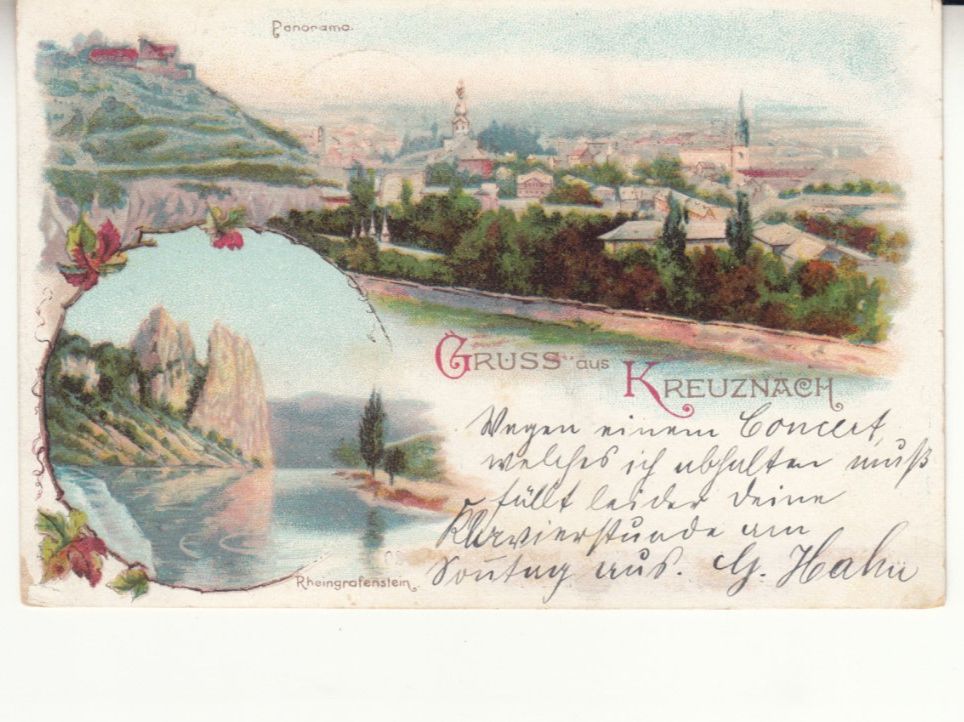 Panorama.
GRUSS aus
KREUZNACH
Wegen einem Concert,
welches ich abhalten muß
fällt leider Deine
Klavierstunde am
Sonntag aus. G. Hahn
Rheingrafenstein